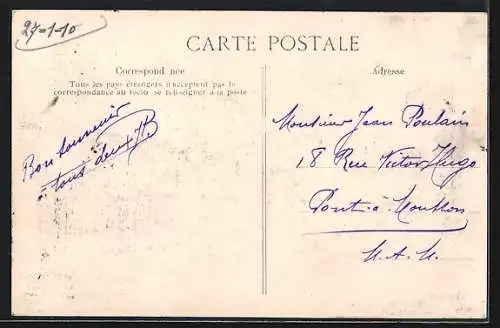 27-1-10
CARTE POSTALE
Correspond nce
Tous les pays étrangers n'acceptent pas la
correspondance au recto se renseigner à la poste
Bon souvenir
à tous deux
Adresse
Monsieur Jean Poulain
18 Rue Victor Hugo
Pont-à-Mousson
M. & M.